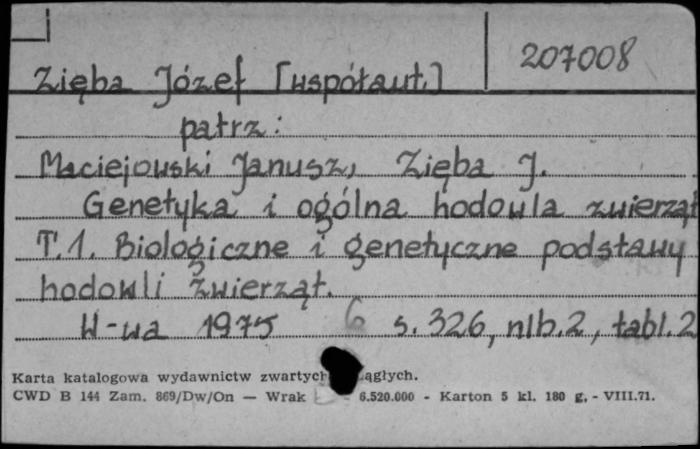 207008
Zięba Józef [współaut.]
patrz:
Maciejowski Janusz, Zięba J.
Genetyka i ogólna hodowla zwierząt
T.1. Biologiczne i genetyczne podstawy
hodowli zwierząt.
W-wa 1975 6 s. 326, nlb.2, tabl.2
Karta katalogowa wydawnictw zwartych ciągłych.
CWD B 144 Zam. 869/Dw/On — Wrak 6.520.000 - Karton 5 kl. 180 g. - VIII.71.